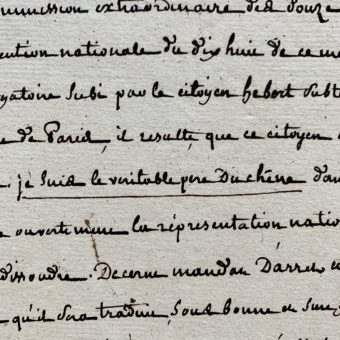 mmission extraordinaire des douze
ention nationale du dix huit de ce mo
gatoire Subi par le citoyen hebert Subt
e de Paris, il resulte que ce citoyen
je Suis le veritable pere Duchêne dan
e ouvertement la répresentation natio
dissoudre. Decerne mandat D'arret
qu'il Sera traduit, Sous bonne et Sure